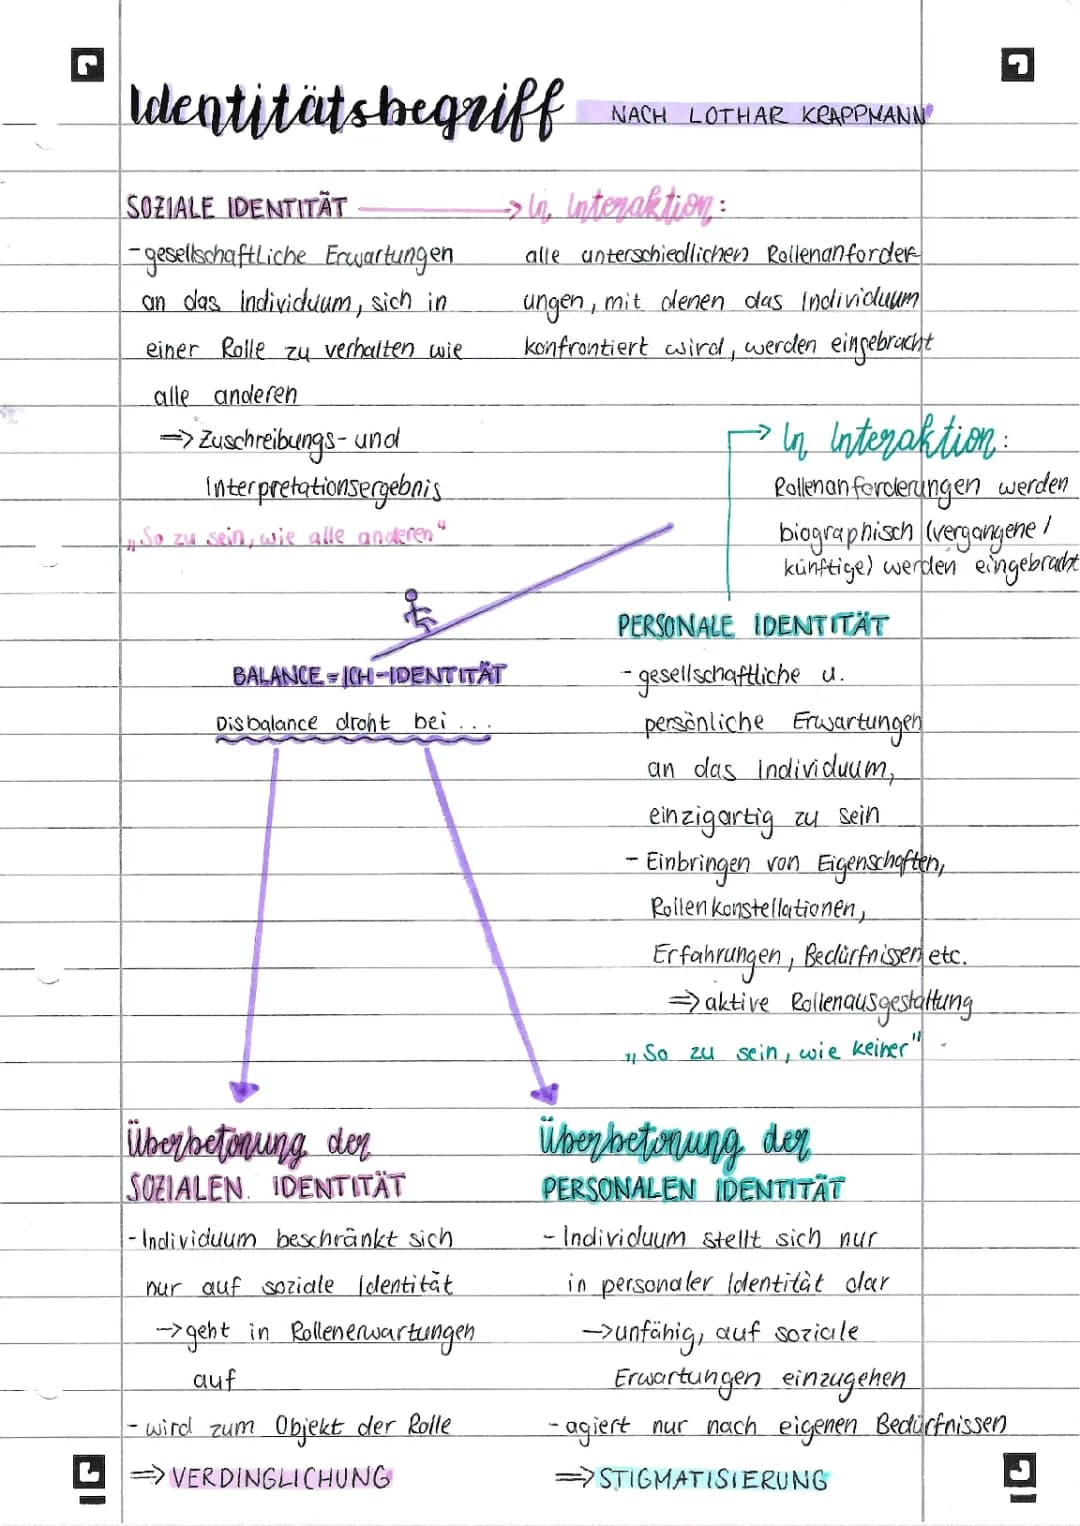 Identitätsbegriff NACH LOTHAR KRAPPMANN
SOZIALE IDENTITÄT
-gesellschaftliche Erwartungen
an das Individuum, sich in
einer Rolle zu verhalten wie
alle anderen
⇒ Zuschreibungs- und
Interpretationsergebnis
„So zu sein, wie alle anderen"
→ In Interaktion:
alle unterschiedlichen Rollenanforder-
ungen, mit denen das Individuum
konfrontiert wird, werden eingebracht
→ In Interaktion:
Rollenanforderungen werden
biographisch (vergangene /
künftige) werden eingebracht
PERSONALE IDENTITÄT
- gesellschaftliche u.
persönliche Erwartungen
an das Individuum,
einzigartig zu sein
- Einbringen von Eigenschaften,
Rollenkonstellationen,
Erfahrungen, Bedürfnissen etc.
⇒ aktive Rollenausgestaltung
„So zu sein, wie keiner"
BALANCE = ICH-IDENTITÄT
Disbalance droht bei ...
Überbetonung der
SOZIALEN IDENTITÄT
- Individuum beschränkt sich
nur auf soziale Identität
→ geht in Rollenerwartungen
auf
- wird zum Objekt der Rolle
⇒ VERDINGLICHUNG
Überbetonung der
PERSONALEN IDENTITÄT
- Individuum stellt sich nur
in personaler Identität dar
→ unfähig, auf soziale
Erwartungen einzugehen
- agiert nur nach eigenen Bedürfnissen
⇒ STIGMATISIERUNG